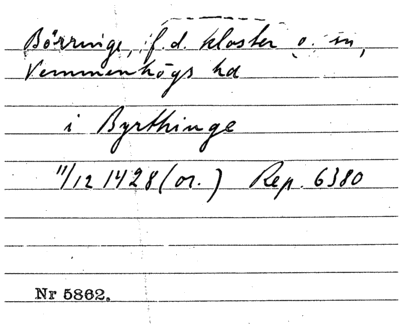 Börringe, f.d. kloster o. sn,
Vemmenhögs hd
i Byrthinge
11/12 1428 (or.) Rep. 6380
Nr 5862.